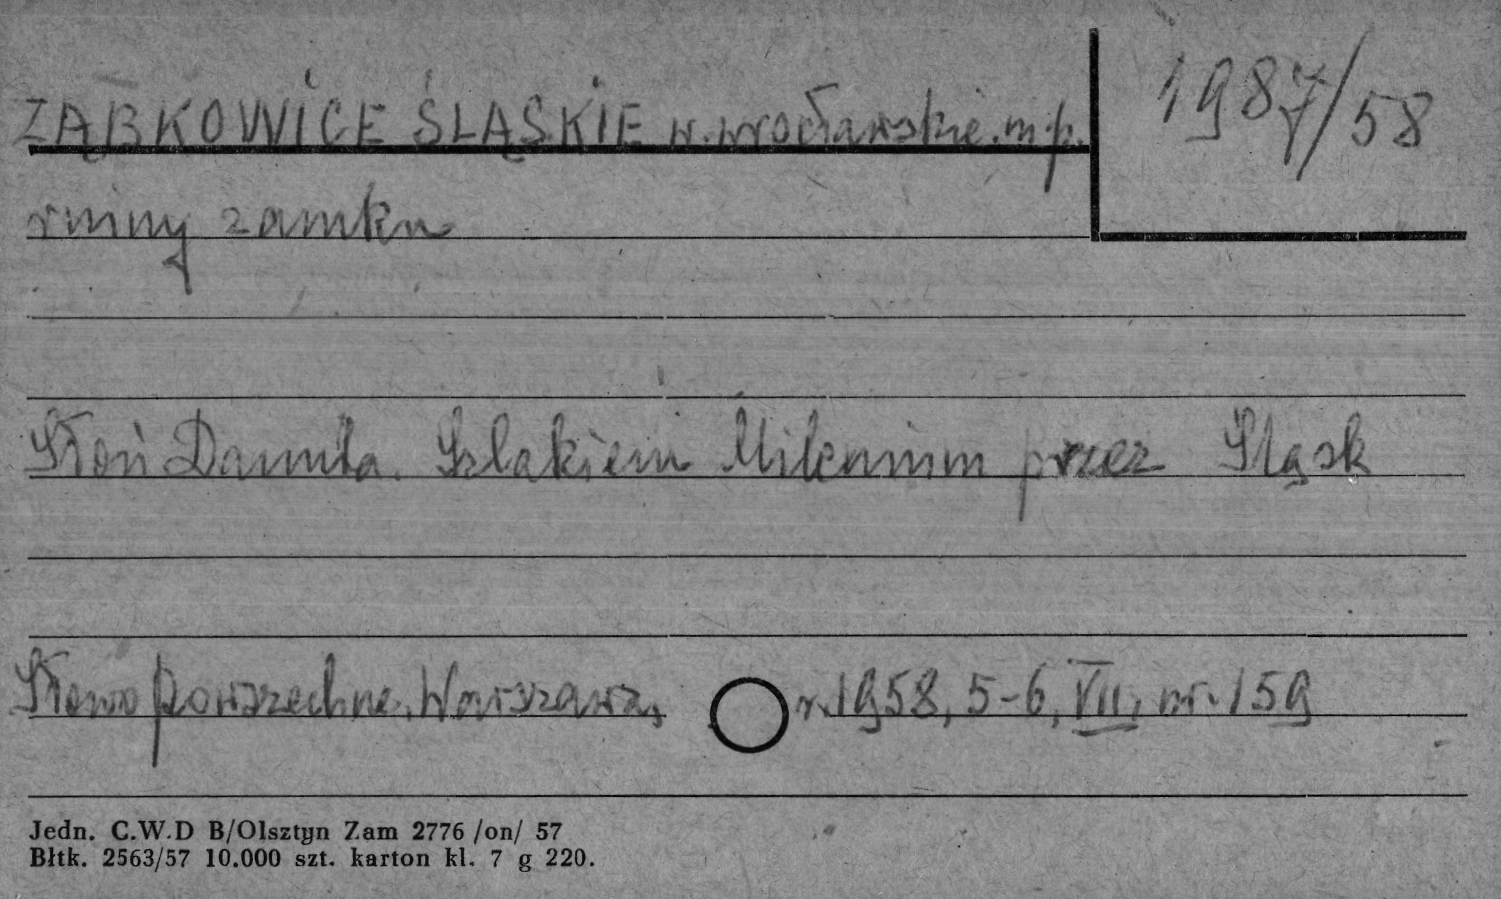 ZĄBKOWICE ŚLĄSKIE w. wrocławskie. m.p.
1987/58
ruiny zamku
Słoń Danuta. Szlakiem Milenium przez Śląsk
Słowo Powszechne. Warszawa, r. 1958, 5-6, VII, nr. 159
Jedn. C.W.D B/Olsztyn Zam 2776 /on/ 57
Błtk. 2563/57 10.000 szt. karton kl. 7 g 220.